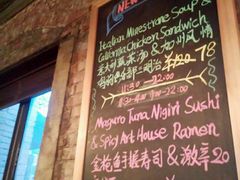 NEW
Italian Minestrone Soup &
California Chicken Sandwich
意大利蔬菜汤 & 加州风情
78
11:30 - 22:00
Maguro Tuna Nigiri Sushi
& Spicy Art House Ramen
金枪鱼手握寿司 & 激辛20